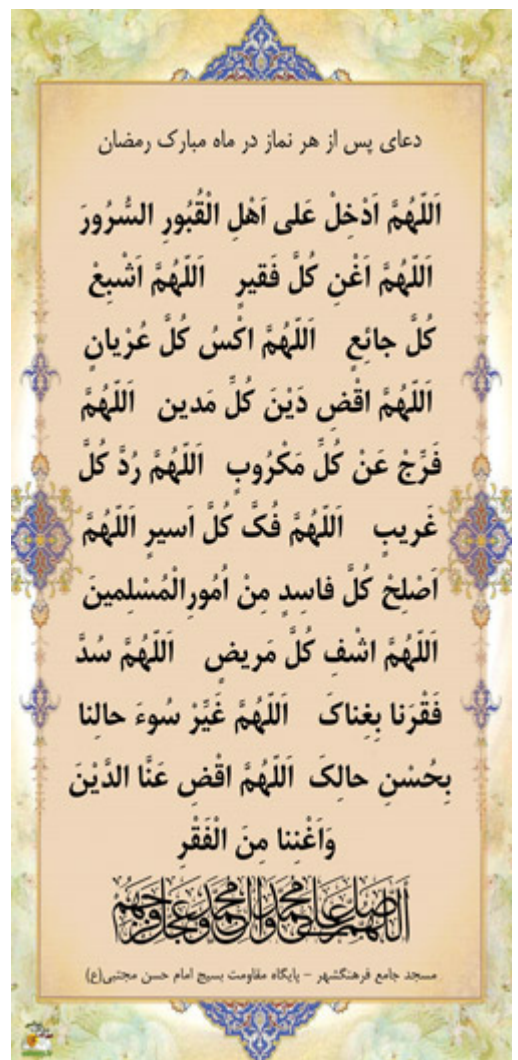 دعای پس از هر نماز در ماه مبارک رمضان
اَللّهُمَّ اَدْخِلْ عَلی اَهْلِ الْقُبُورِ السُّرُورَ
اَللّهُمَّ اَغْنِ کُلَّ فَقیرٍ اَللّهُمَّ اَشْبِعْ
کُلَّ جائِعٍ اَللّهُمَّ اکْسُ کُلَّ عُرْیانٍ
اَللّهُمَّ اقْضِ دَیْنَ کُلِّ مَدین اَللّهُمَّ
فَرِّجْ عَنْ کُلِّ مَکْرُوبٍ اَللّهُمَّ رُدَّ کُلَّ
غَریبٍ اَللّهُمَّ فُکَّ کُلَّ اَسیرٍ اَللّهُمَّ
اَصْلِحْ کُلَّ فاسِدٍ مِنْ اُمُورِالْمُسْلِمینَ
اَللّهُمَّ اشْفِ کُلَّ مَریضٍ اَللّهُمَّ سُدَّ
فَقْرَنا بِغِناکَ اَللّهُمَّ غَیِّرْ سُوءَ حالِنا
بِحُسْنِ حالِکَ اَللّهُمَّ اقْضِ عَنَّا الدَّیْنَ
وَاَغْنِنا مِنَ الْفَقْرِ
اللهم صل علی محمد و آل محمد و عجل فرجهم
مسجد جامع فرهنگشهر – پایگاه مقاومت بسیج امام حسن مجتبی(ع)